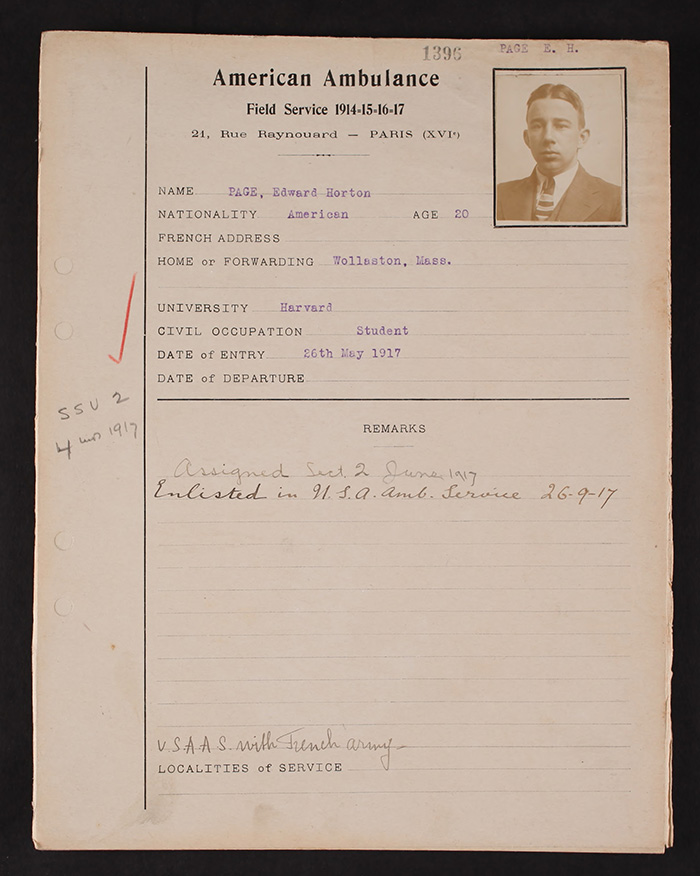 1396 PAGE E. H.
American Ambulance
Field Service 1914-15-16-17
21, Rue Raynouard — PARIS (XVIe)
NAME PAGE, Edward Horton
NATIONALITY American AGE 20
FRENCH ADDRESS
HOME or FORWARDING Wollaston, Mass.
UNIVERSITY Harvard
CIVIL OCCUPATION Student
DATE of ENTRY 26th May 1917
DATE of DEPARTURE
SSU 2
4 mos 1917
REMARKS
Assigned Sect. 2 June 1917
Enlisted in U.S.A. Amb. Service 26-9-17
U.S.A.A.S. with French Army
LOCALITIES of SERVICE